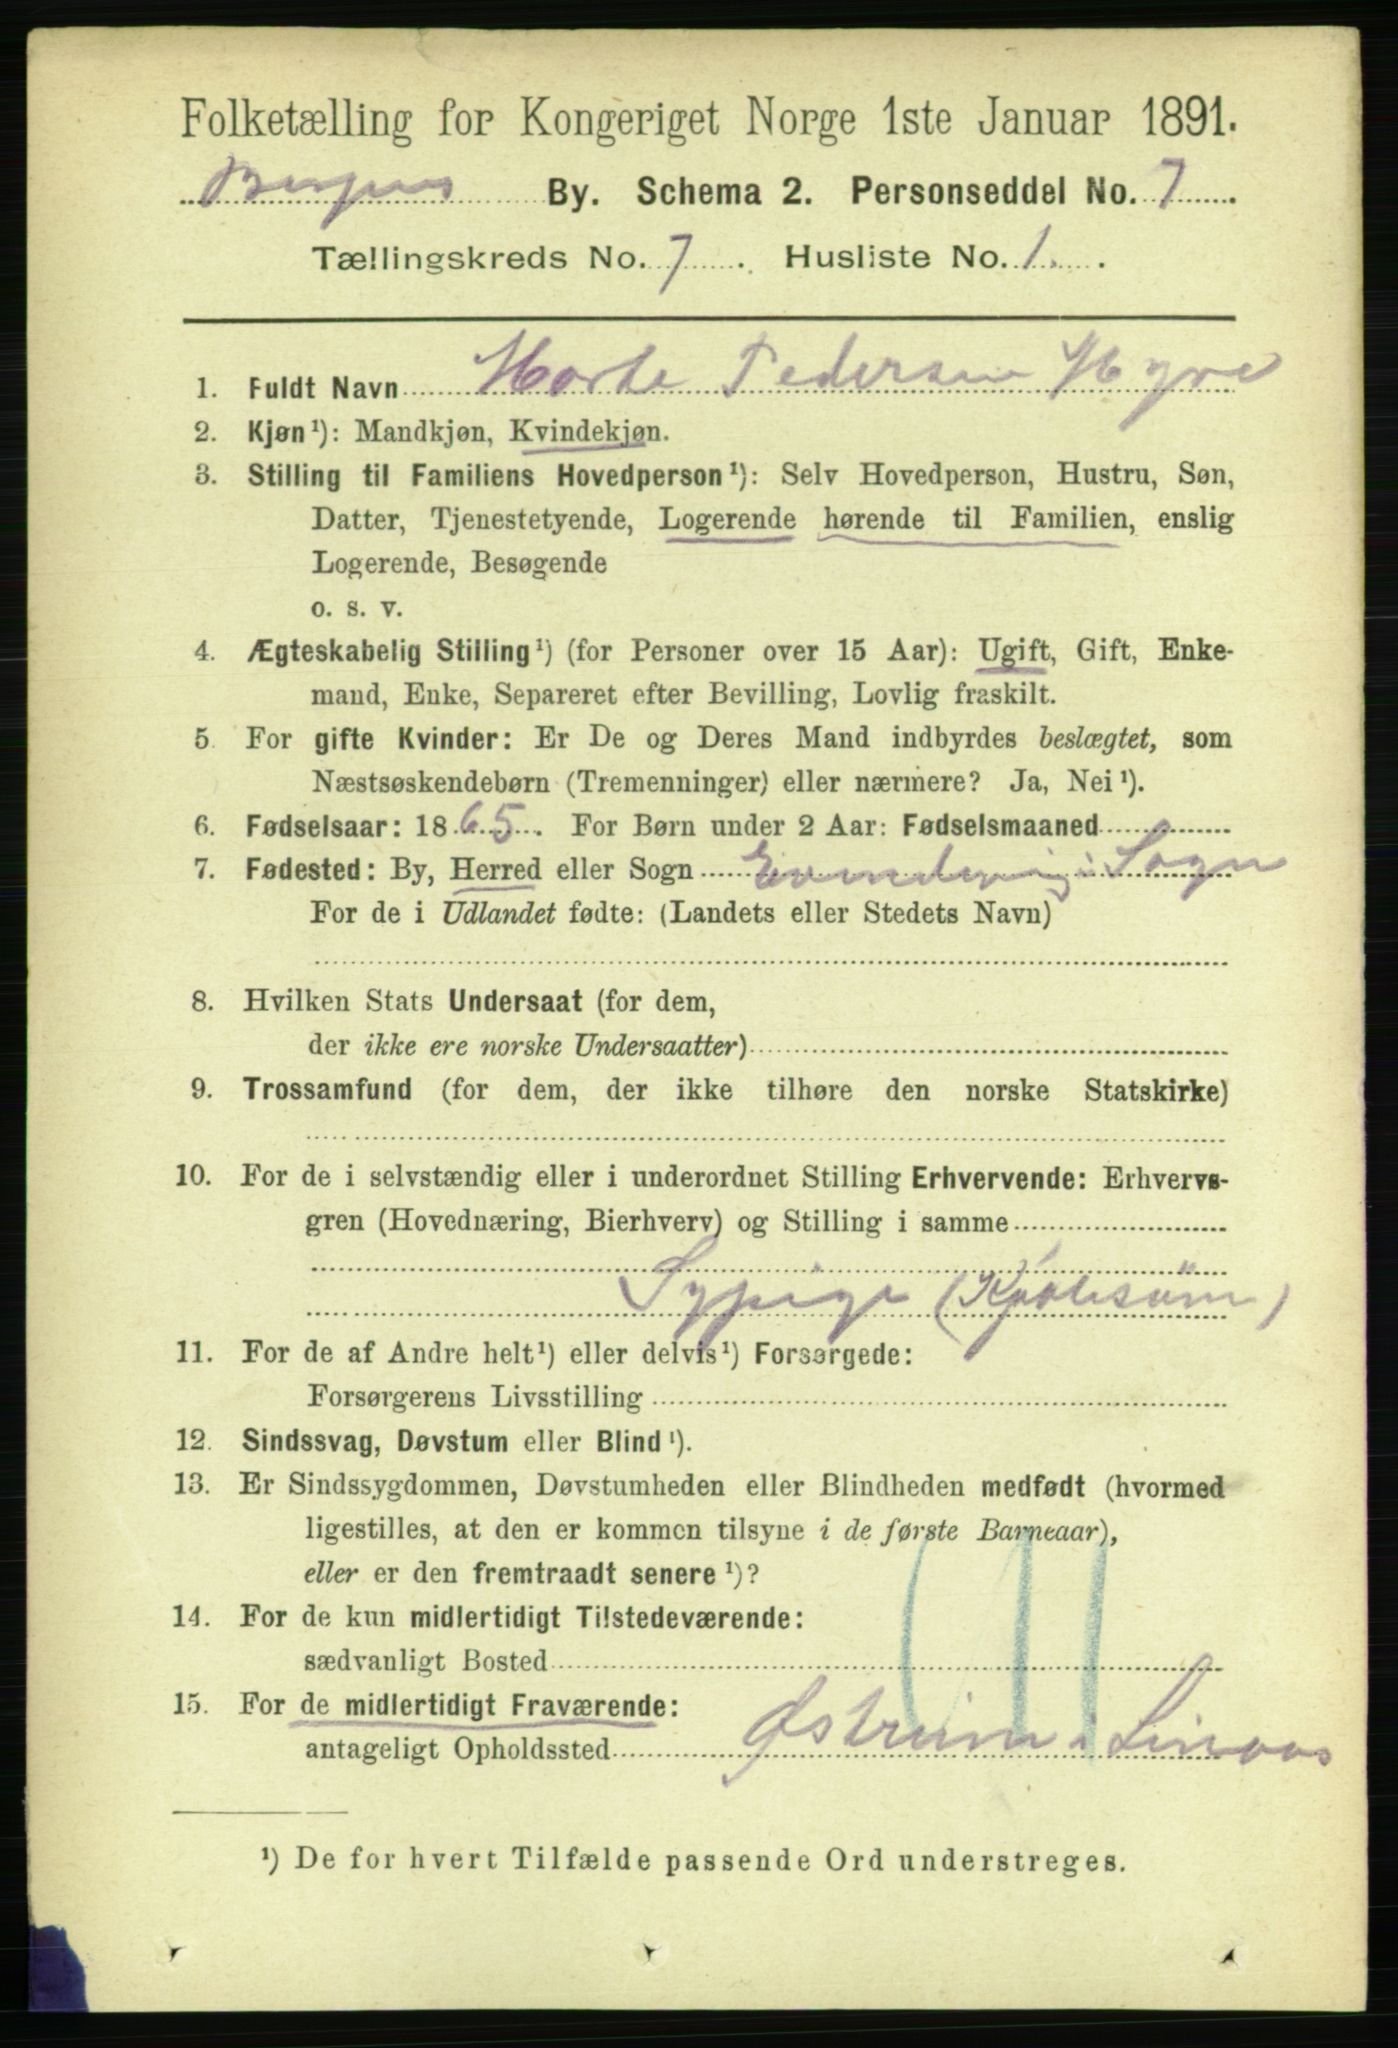 Folketælling for Kongeriget Norge 1ste Januar 1891.
Bergens By. Schema 2. Personseddel No. 7
Tællingskreds No. 7. Husliste No. 1.
1. Fuldt Navn Pedersen Hyve
2. Kjøn¹): Mandkjøn, Kvindekjøn.
3. Stilling til Familiens Hovedperson¹): Selv Hovedperson, Hustru, Søn,
Datter, Tjenestetyende, Logerende hørende til Familien, enslig
Logerende, Besøgende
o. s. v.
4. Ægteskabelig Stilling¹) (for Personer over 15 Aar): Ugift, Gift, Enke-
mand, Enke, Separeret efter Bevilling, Lovlig fraskilt.
5. For gifte Kvinder: Er De og Deres Mand indbyrdes beslægtet, som
Næstsøskendebørn (Tremenninger) eller nærmere? Ja, Nei¹).
6. Fødselsaar: 1865. For Børn under 2 Aar: Fødselsmaaned
7. Fødested: By, Herred eller Sogn Evindvig i Sogn
For de i Udlandet fødte: (Landets eller Stedets Navn)
8. Hvilken Stats Undersaat (for dem,
der ikke ere norske Undersaatter)
9. Trossamfund (for dem, der ikke tilhøre den norske Statskirke)
10. For de i selvstændig eller i underordnet Stilling Erhvervende: Erhvervs-
gren (Hovednæring, Bierhverv) og Stilling i samme
Sypige (Kjolesøm)
11. For de af Andre helt¹) eller delvis¹) Forsørgede:
Forsørgerens Livsstilling
12. Sindssvag, Døvstum eller Blind¹).
13. Er Sindssygdommen, Døvstumheden eller Blindheden medfødt (hvormed
ligestilles, at den er kommen tilsyne i de første Barneaar),
eller er den fremtraadt senere¹)?
14. For de kun midlertidigt Tilstedeværende:
sædvanligt Bosted
15. For de midlertidigt Fraværende:
antageligt Opholdssted Østreim i Linaas
¹) De for hvert Tilfælde passende Ord understreges.